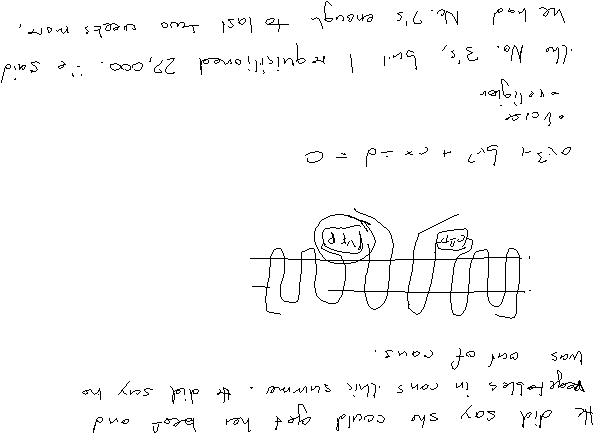 He did say she could get her beat and
vegetables in cans this summe. He did say he
was out of cans.
ax3 + bx2 + cx + d = 0
• race
• religion
the No. 3's, but I requisitioned 22,000. He said
he had No. 2's enough to last two weeks more.